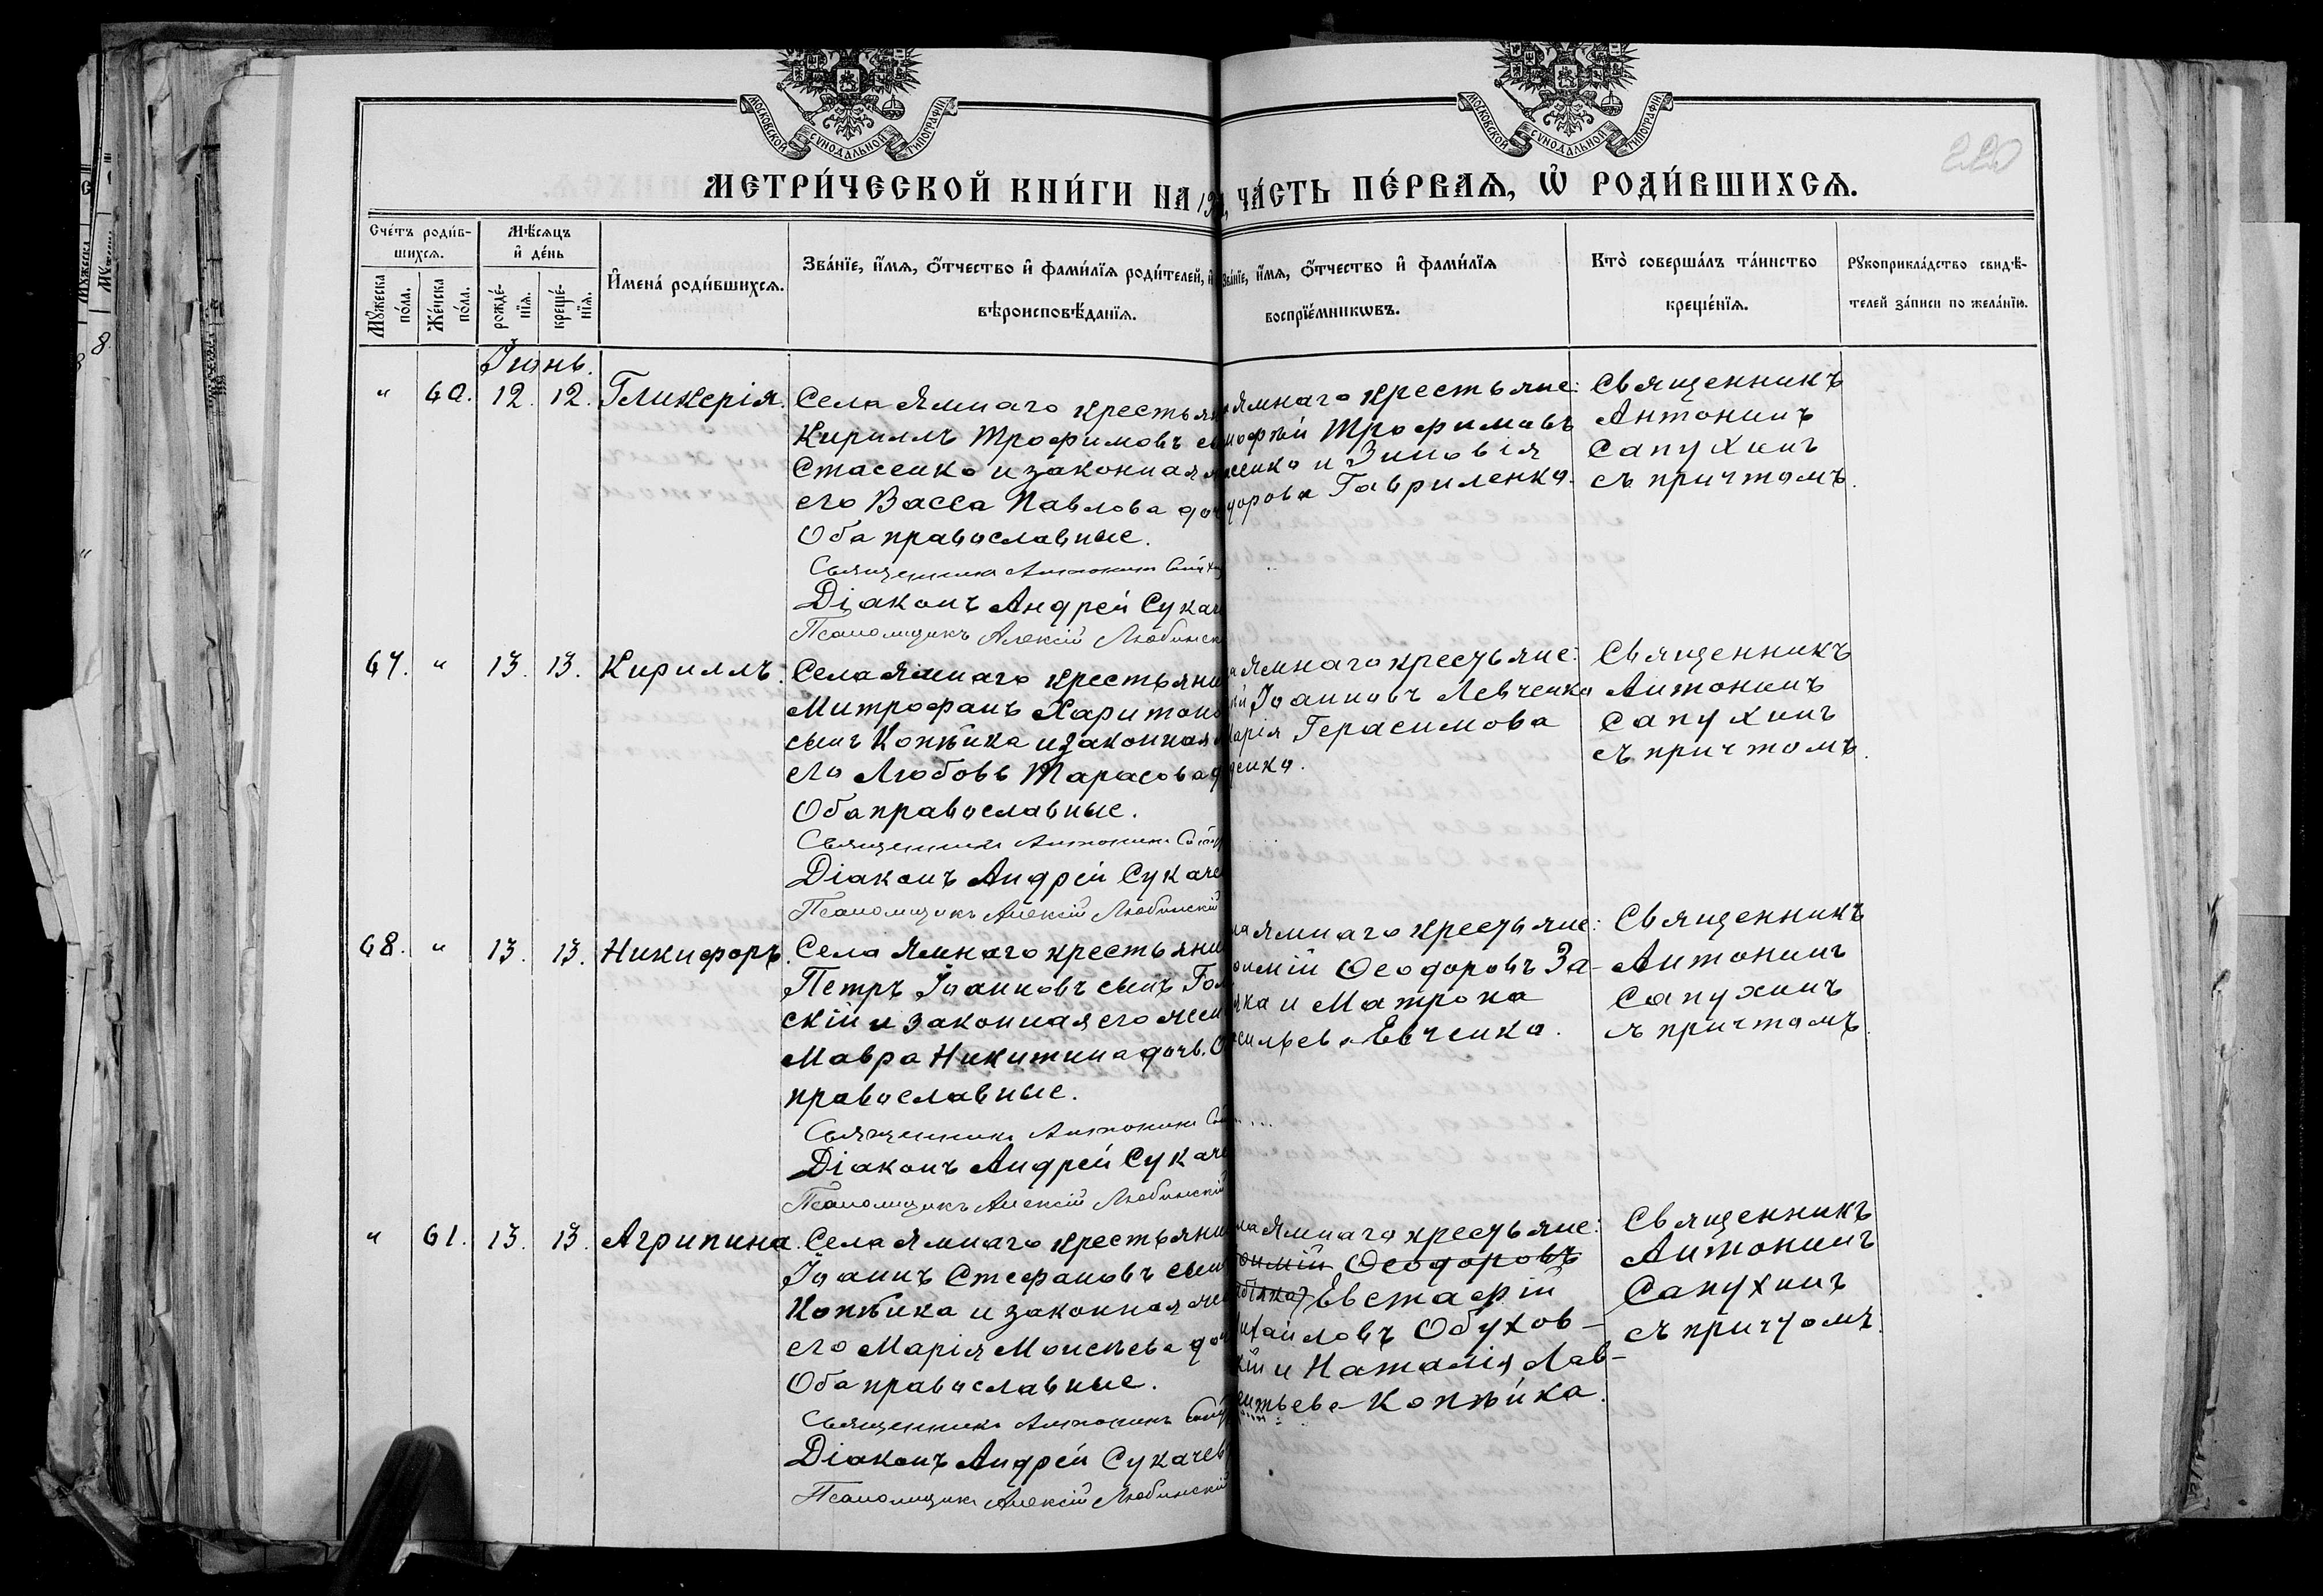 МОСКОВСКОЙ СѴНОДАЛЬНОЙ ТИПОГРАФІИ
МОСКОВСКОЙ СѴНОДАЛЬНОЙ ТИПОГРАФІИ
МЕТРИ́ЧЕСКОЙ КНИ́ГИ НА ЧА́СТЬ ПЕ́РВАЯ, Ѡ РОДИ́ВШИХСЯ.
Сче́тъ роди́в-
шихся.
Мѣ́сяцъ
и҆ де́нь
Мꙋ́жеска по́ла.
Же́нска по́ла.
рожде́-
нїя.
креще́-
нїя.
И҆мена̀ роди́вшихся.
Зва́нїе, и҆́мя, ѻ҆́тчество и҆ фами́лїя роди́телей, и҆
вѣроисповѣ́данїя.
Зва́нїе, и҆́мя, ѻ҆́тчество и҆ фами́лїя
воспрїе́мникѡвъ.
Кто̀ соверша́лъ та́инство
креще́нїя.
Рꙋкоприкла́дство свидѣ́-
телей за́писи по жела́нїю.
Іюнь.
" 60. 12. 12. Гликерія.
Села Ямнаго крестьян
Кириллъ Трофимовъ сы
Стасенко и законная ж
его Васса Павлова доч
Оба православные.
Священникъ Антонинъ Сапух
Діаконъ Андрей Сукач
Псаломщикъ Алексій Любинск
Ямнаго крестьяне:
мофѣй Трофимовъ
сенко и Зиновія
дорова Гавриленко.
Священникъ
Антонинъ
Сапухинъ
съ причтомъ.
67. " 13. 13. Кириллъ.
Села Ямнаго крестьяни
Митрофанъ Харитоно
сынъ Копѣйка и законная
его Любовь Тарасова д
Оба православные.
Священникъ Антонинъ Сапу
Діаконъ Андрей Сукаче
Псаломщикъ Алексій Любинскій
Ямнаго крестьяне:
Іоанновъ Левченко
арія Герасимова
енко.
Священникъ
Антонинъ
Сапухинъ
съ причтомъ.
68. " 13. 13. Никифоръ.
Села Ямнаго крестьяни
Петръ Іоанновъ сынъ Гол
скій и законная его жен
Мавра Никитина дочь. О
православные.
Священникъ Антонинъ Са
Діаконъ Андрей Сукаче
Псаломщикъ Алексій Любинскій
ла Ямнаго крестьяне:
оимій Ѳеодоровъ За-
ка и Матрона
сильева Евченко.
Священникъ
Антонинъ
Сапухинъ
съ причтомъ.
" 61. 13. 13. Агрипина.
Села Ямнаго крестьяни
Іоаннъ Стефановъ сын
Копѣйка и законная же
его Марія Моисѣева доч
Оба православные.
Священникъ Антонинъ Сапу
Діаконъ Андрей Сукачев
Псаломщикъ Алексій Любинскій
ла Ямнаго крестьяне:
оимій Ѳеодоровъ
Евстафій
ихайловъ Обухов-
кій и Наталія Лав-
ентьева Копѣйка.
Священникъ
Антонинъ
Сапухинъ
съ причтомъ.